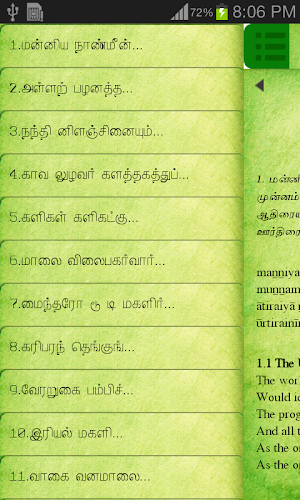 72% 8:06 PM
1.மன்னிய நாண்மீன்...
2.அள்ளற் பழனத்த...
3.நந்தி னிளஞ்சினையும்...
4.காவ லுழவர் களத்தகத்துப்...
5.களிகள் களிகட்கு...
6.மாலை விலைபகர்வார்...
7.மைந்தரோ ரூ டி மகளிர்...
8.கரிபரந் தெங்குங்...
9.வேரறுகை பம்பிச்...
10.இரியல் மகளி...
11.வாகை வனமாலை...
1. மன்னி
முன்னம்
ஆதிரைய
ஊர்திரை
maṉṉiya
muṉṉam
ātiraiyā
ūrtirainī
1.1 The U
The wor
Would ic
The prog
And all t
As the o
As the o